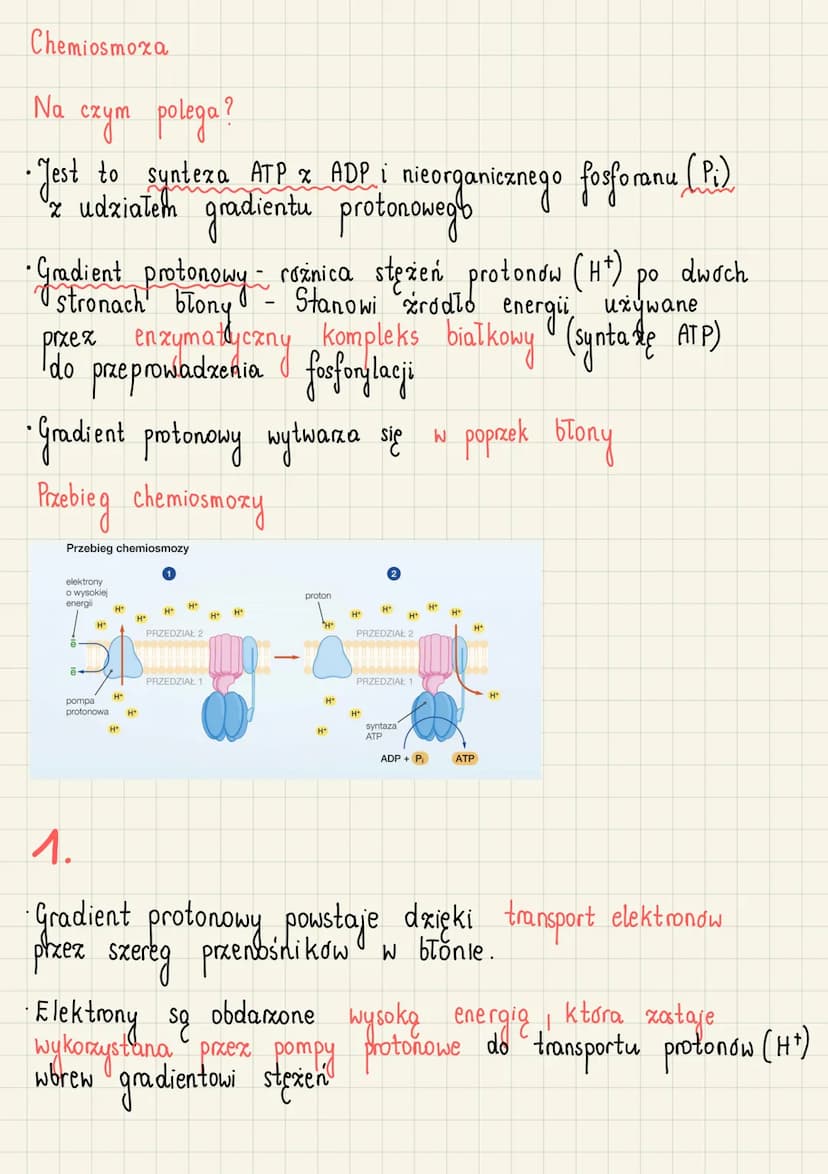 Chemiosmoza
Na czym polega?
·Jest to synteza ATP z ADP i nieorganicznego fosforanu (Pi)
z udziałem gradientu protonowego
·Gradient protonowy - różnica stężeń protonów (H+) po dwóch
stronach błony - Stanowi źródło energii używane
przez enzymatyczny kompleks białkowy (syntazę ATP)
do przeprowadzenia fosforylacji
·Gradient protonowy wytwarza się w poprzek błony
Przebieg chemiosmozy
Przebieg chemiosmozy
1
2
elektrony
o wysokiej
energii
proton
H+ H+ H+ H+ H+ H+ H+
H+ H+ H+ H+ H+ H+ H+
PRZEDZIAŁ 2
PRZEDZIAŁ 2
ē
ē
PRZEDZIAŁ 1
PRZEDZIAŁ 1
pompa
protonowa
H+ H+ H+
H+ H+ H+
H+
syntaza
ATP
ADP + Pi
ATP
1.
·Gradient protonowy powstaje dzięki transport elektronów
przez szereg przenośników w błonie.
·Elektrony są obdarzone wysoką energią, która zostaje
wykorzystana przez pompy protonowe do transportu protonów (H+)
wbrew gradientowi stężeń